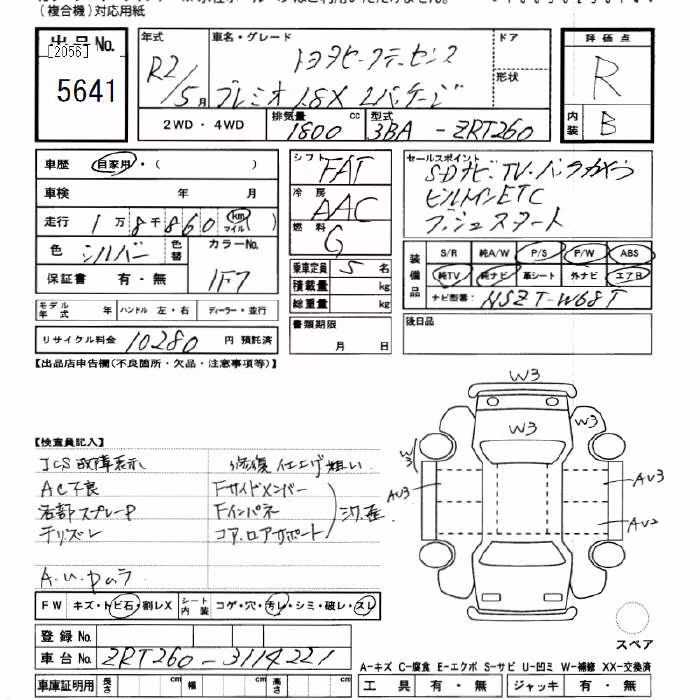 (複合機)対応用紙
出品No.
[2056]
5641
年式 R2/5月
車名・グレード トヨタヒークラーセンス
プレミオ 1.8X Lパッケージ
ドア
形状
2WD・4WD
排気量 1800 cc
型式 3BA-ZRT260
評価点
R
内装 B
車歴 自家用・( )
車検 年 月
走行 1万8千860 km マイル ( )
色 シルバー 色替
カラーNo. 1F7
保証書 有・無
モデル年式 ハンドル 左・右 ディーラー・並行
リサイクル料金 10280 円 預託済
シフト FAT
冷房 AAC
燃料 G
乗車定員 5 名
積載量 kg
総重量 kg
書類期限
月 日
セールスポイント
SDナビ・TV・バックカメラ
ビルトインETC
プッシュスタート
装備品
S/R 純A/W P/S P/W ABS
純TV 純ナビ 革シート 外ナビ エアB
ナビ型番: NSZT-W68T
後日品
【出品店申告欄(不良箇所・欠品・注意事項等)】
【検査員記入】
ICS故障表示
AC不良
各部スプレーP
テリズレ
A.U.Pカラ
修復仕上げ粗い
Fサイドメンバー
Fインパネ
コア.ロアサポート
W3
W3
W3
W3
AU3
AU3
AU2
スペア
FW キズ・トビ石・割レX
シート内装 コゲ・穴・汚レ・シミ・破レ・スレ
登録No.
車台No. ZRT260-3114221
車庫証明用 長さ cm 幅 cm 高さ cm
A-キズ C-腐食 E-エクボ S-サビ U-凹ミ W-補修 XX-交換済
工具 有・無 ジャッキ 有・無